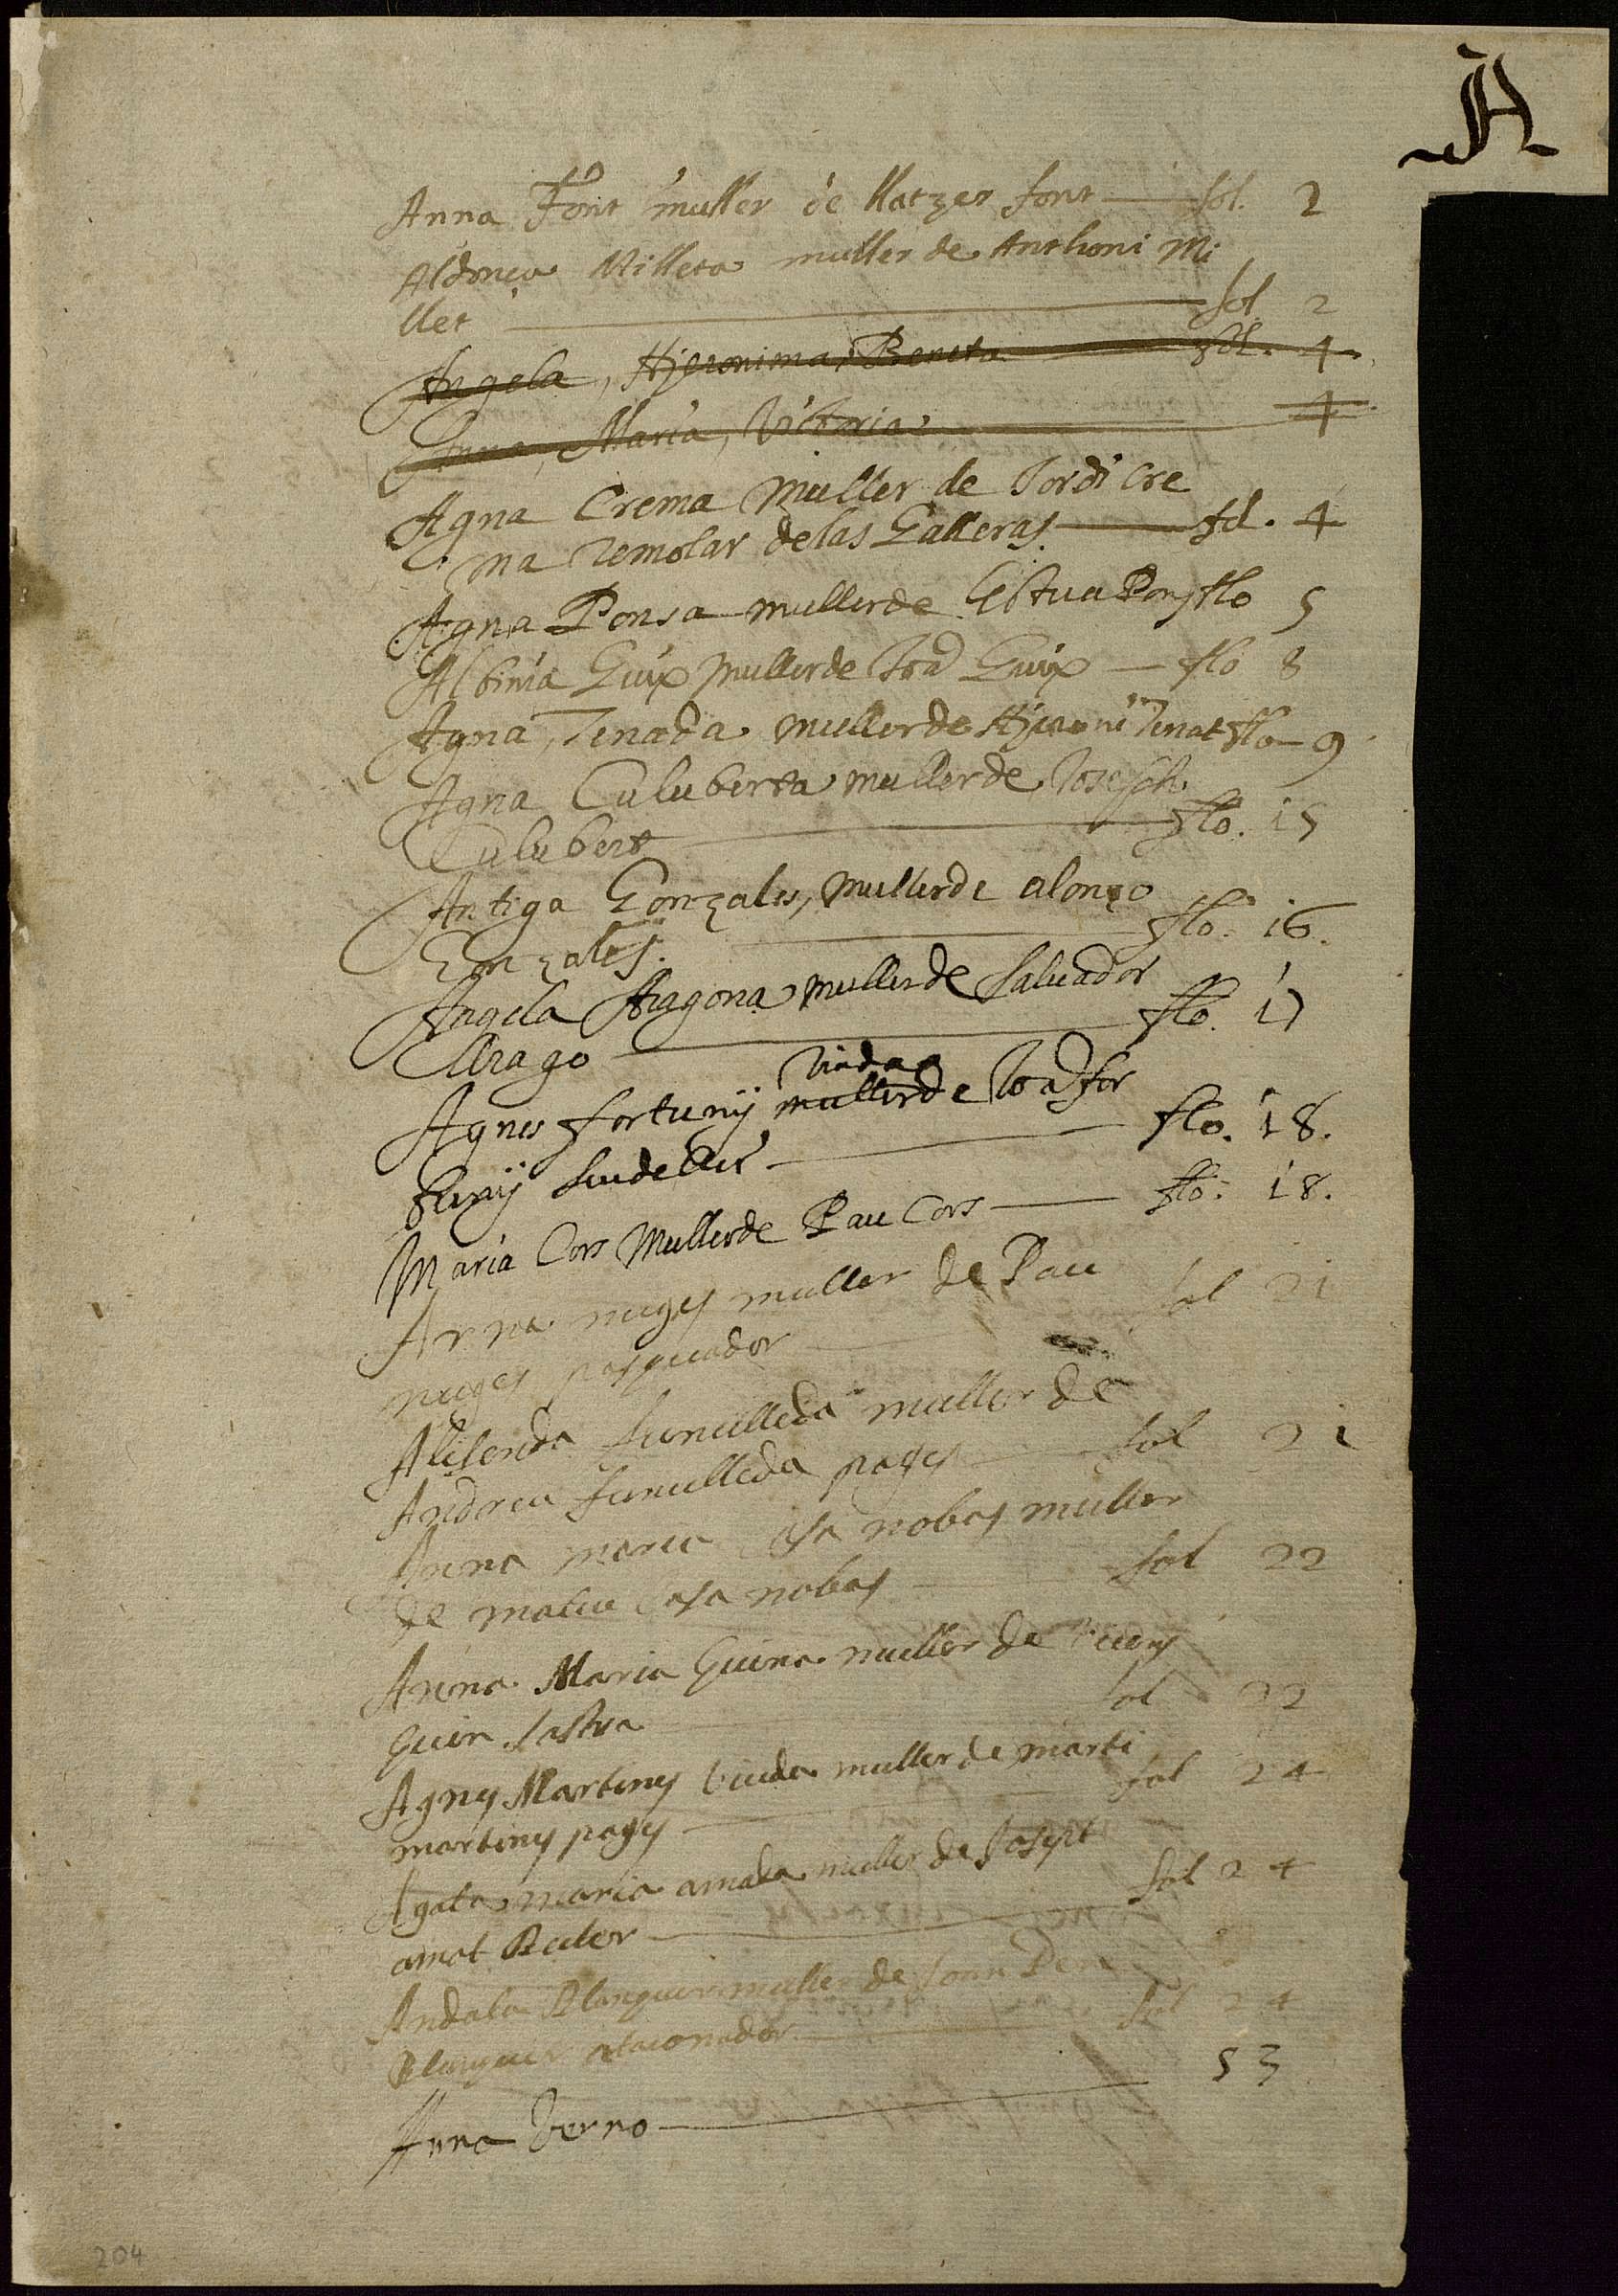 A
Anna Font muller de llatzer font fol. 2
Aldonça Milleta muller de Anthoni Mi
llet fol 2
Angela, Hyeronima, Beneta fol. 4
Anna, Maria, Victoria 4
Agna Crema Muller de Jordi Cre
ma Remolar de las Galleras fol. 4
Agna Ponsa muller de Esteua Pons flo 5
Albinia Guix Muller de Joa Guix flo 8
Agna, Tenada muller de Hyeroni Tenat flo 9
Agna Culuberta muller de Joseph
Culubert flo. 15
Antiga Gonzales, muller de alonço
Gonzales. flo. 16.
Angela Aragona muller de Saluador
Arago flo. 17
Viuda
Agnes fortuny muller de Joa for
tuny flo. 18.
Maria Cors Muller de Pau Cors flo. 18.
Anna nuges muller de Pau
nuges pasquador fol 21
Alisenda funulleda muller de
Andreu funulleda pages fol 21
Anna maria Casa nobas muller
de mateu Casa nobas fol 22
Anna Maria Guina muller de Vicens
Guin sastra fol 22
Agnes Martines Viuda muller de marti
martines pages fol 24
Agata maria amada muller de Josept
amat fol 24
Blanquer muller de Joan Pere
Blanquer fol 24
Anna Verno 53
204